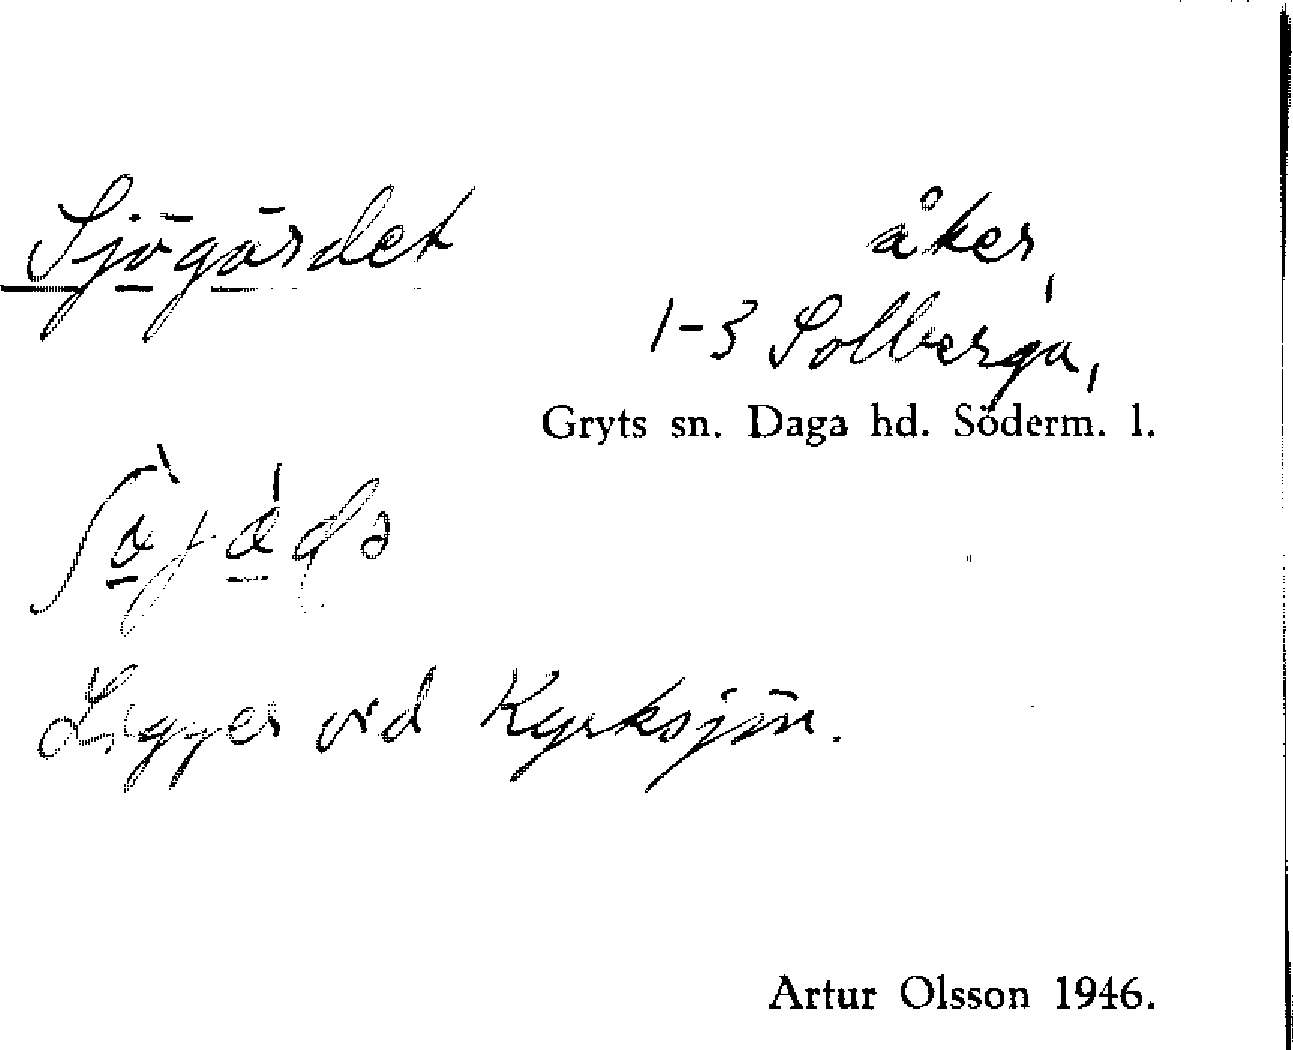 Sjögärdet åker,
1-3 Solberga,
Gryts sn. Daga hd. Söderm. l.
Ligger vid Kyrksjön.
Artur Olsson 1946.